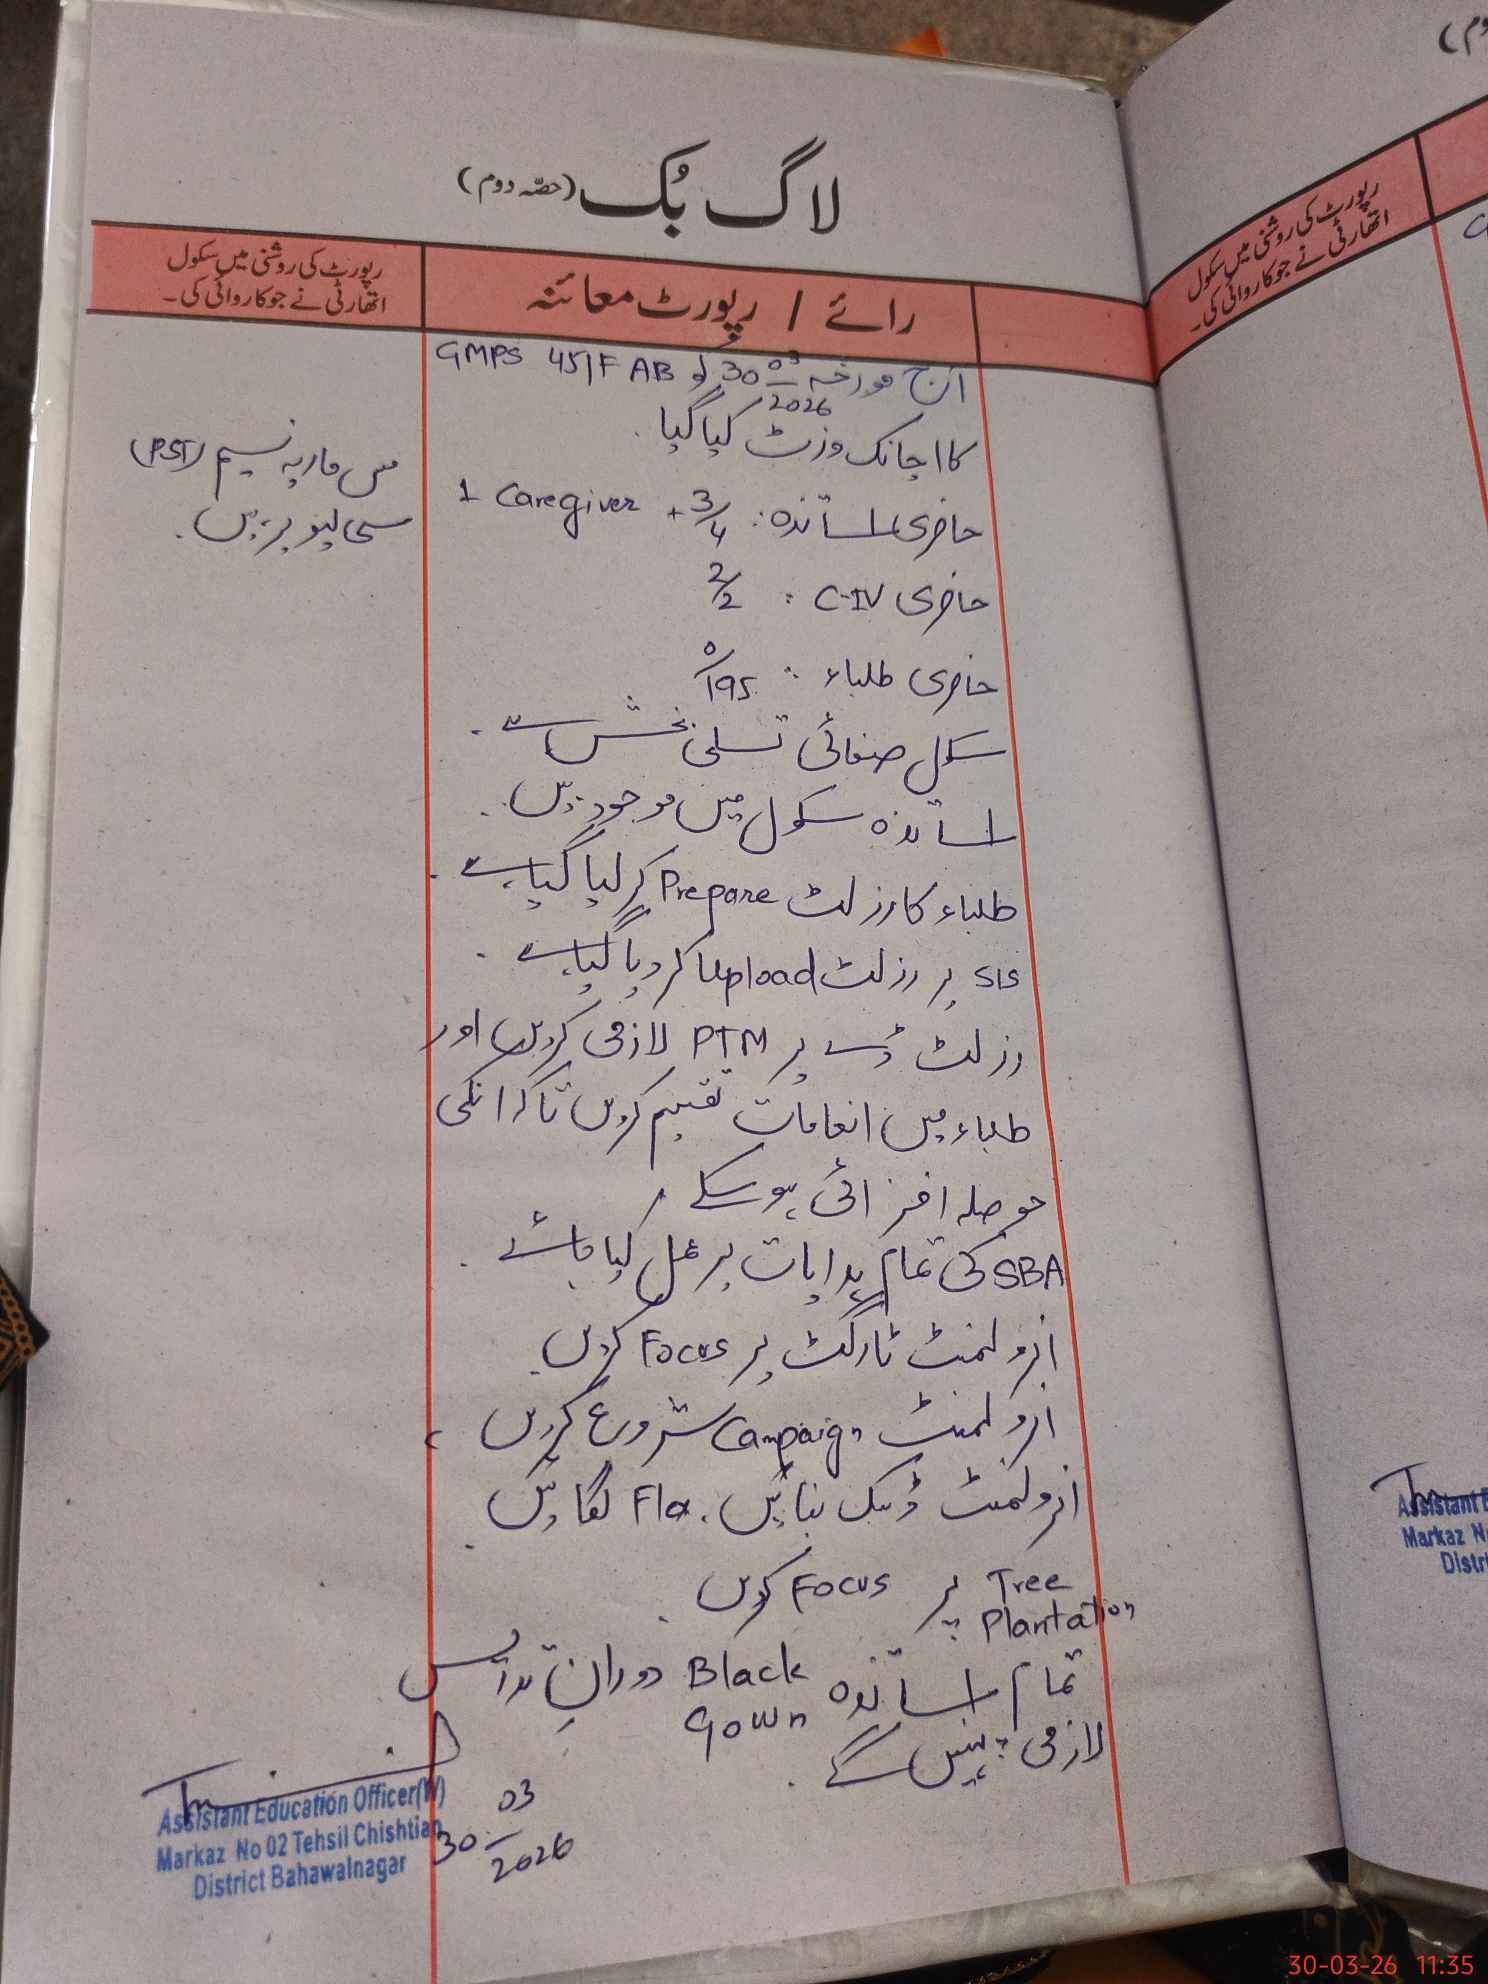 لاگ بُک (حصّہ دوم)
رائے / رپورٹ معائنہ
رپورٹ کی روشنی میں سکول
اتھارٹی نے جو کاروائی کی۔
آج مورخہ 30-03-2026 کو GMPS 45/F AB
کا اچانک وزٹ کیا گیا۔
حاضری اساتذہ: 3/4 + 1 Caregiver
حاضری C-IV : 2/2
حاضری طلباء : 0/195
سکول صفائی تسلی بخش ہے۔
اساتذہ سکول میں موجود ہیں۔
طلباء کا رزلٹ Prepare کر لیا گیا ہے۔
SIS پر رزلٹ Upload کر دیا گیا ہے۔
رزلٹ ڈے پر PTM لازمی کریں اور
طلباء میں انعامات تقسیم کریں تاکہ انکی
حوصلہ افزائی ہو سکے۔
SBA کی تمام ہدایات پر عمل کیا جائے۔
انرولمنٹ ٹارگٹ پر Focus کریں۔
انرولمنٹ Campaign شروع کریں،
انرولمنٹ ڈیسک بنائیں۔ Flex لگائیں۔
Tree Plantation پر Focus کریں۔
تمام اساتذہ Black Gown دورانِ تدریس
لازمی پہنیں گے۔
مس ماریہ نسیم (PST)
سی لیو پر ہیں۔
Assistant Education Officer(W)
Markaz No 02 Tehsil Chishtian
District Bahawalnagar
30-03-2026
رپورٹ کی روشنی میں سکول
اتھارٹی نے جو کاروائی کی۔
Assistant E
Markaz N
Distri
30-03-26 11:35